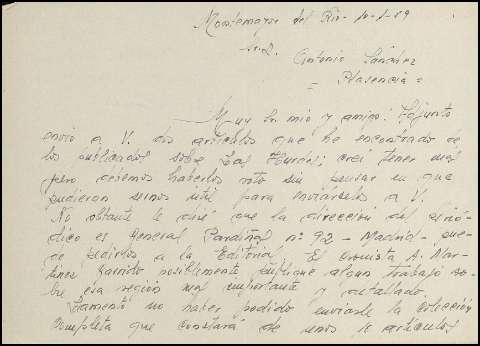 Montemayor del Río - 10-8-89
Sr. D.
Antonio Sánchez
= Plasencia =
Muy Sr. mío y amigo: Adjunto
envio a V. dos articulos que he encontrado de
los publicados sobre Las Hurdes; creí tener mas
pero debemos haberlos roto sin pensar en que
pudieran sernos útil para enviárselos a V.
No obtante le diré que la dirección del perió-
dico es General Pardiñas nº 92 - Madrid - pue-
de pedirlos a la Editorial. El cronista A. Mar-
tinez Garrido posiblemente publique algun trabajo so-
bre esa región mas importante y detallado.
Lamento no haber podido enviarle la colección
completa que constará de unos articulos